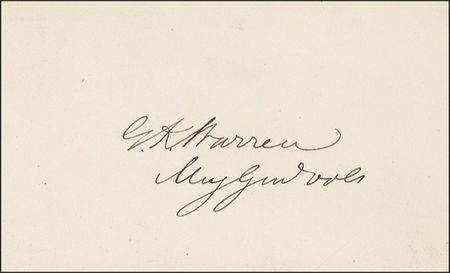 G.K. Warren
Maj Gen Vols